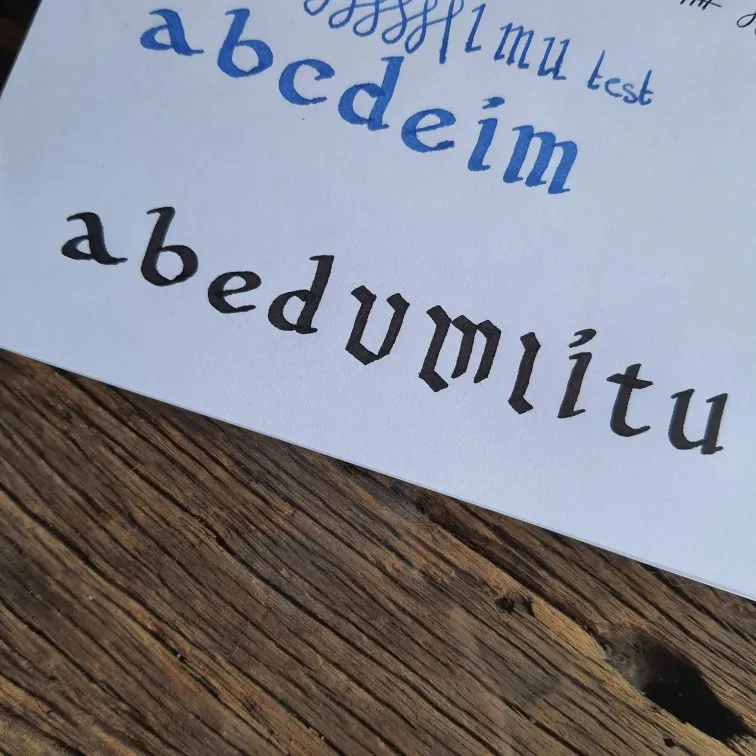 l mu test
abcdeim
abedvmiitu